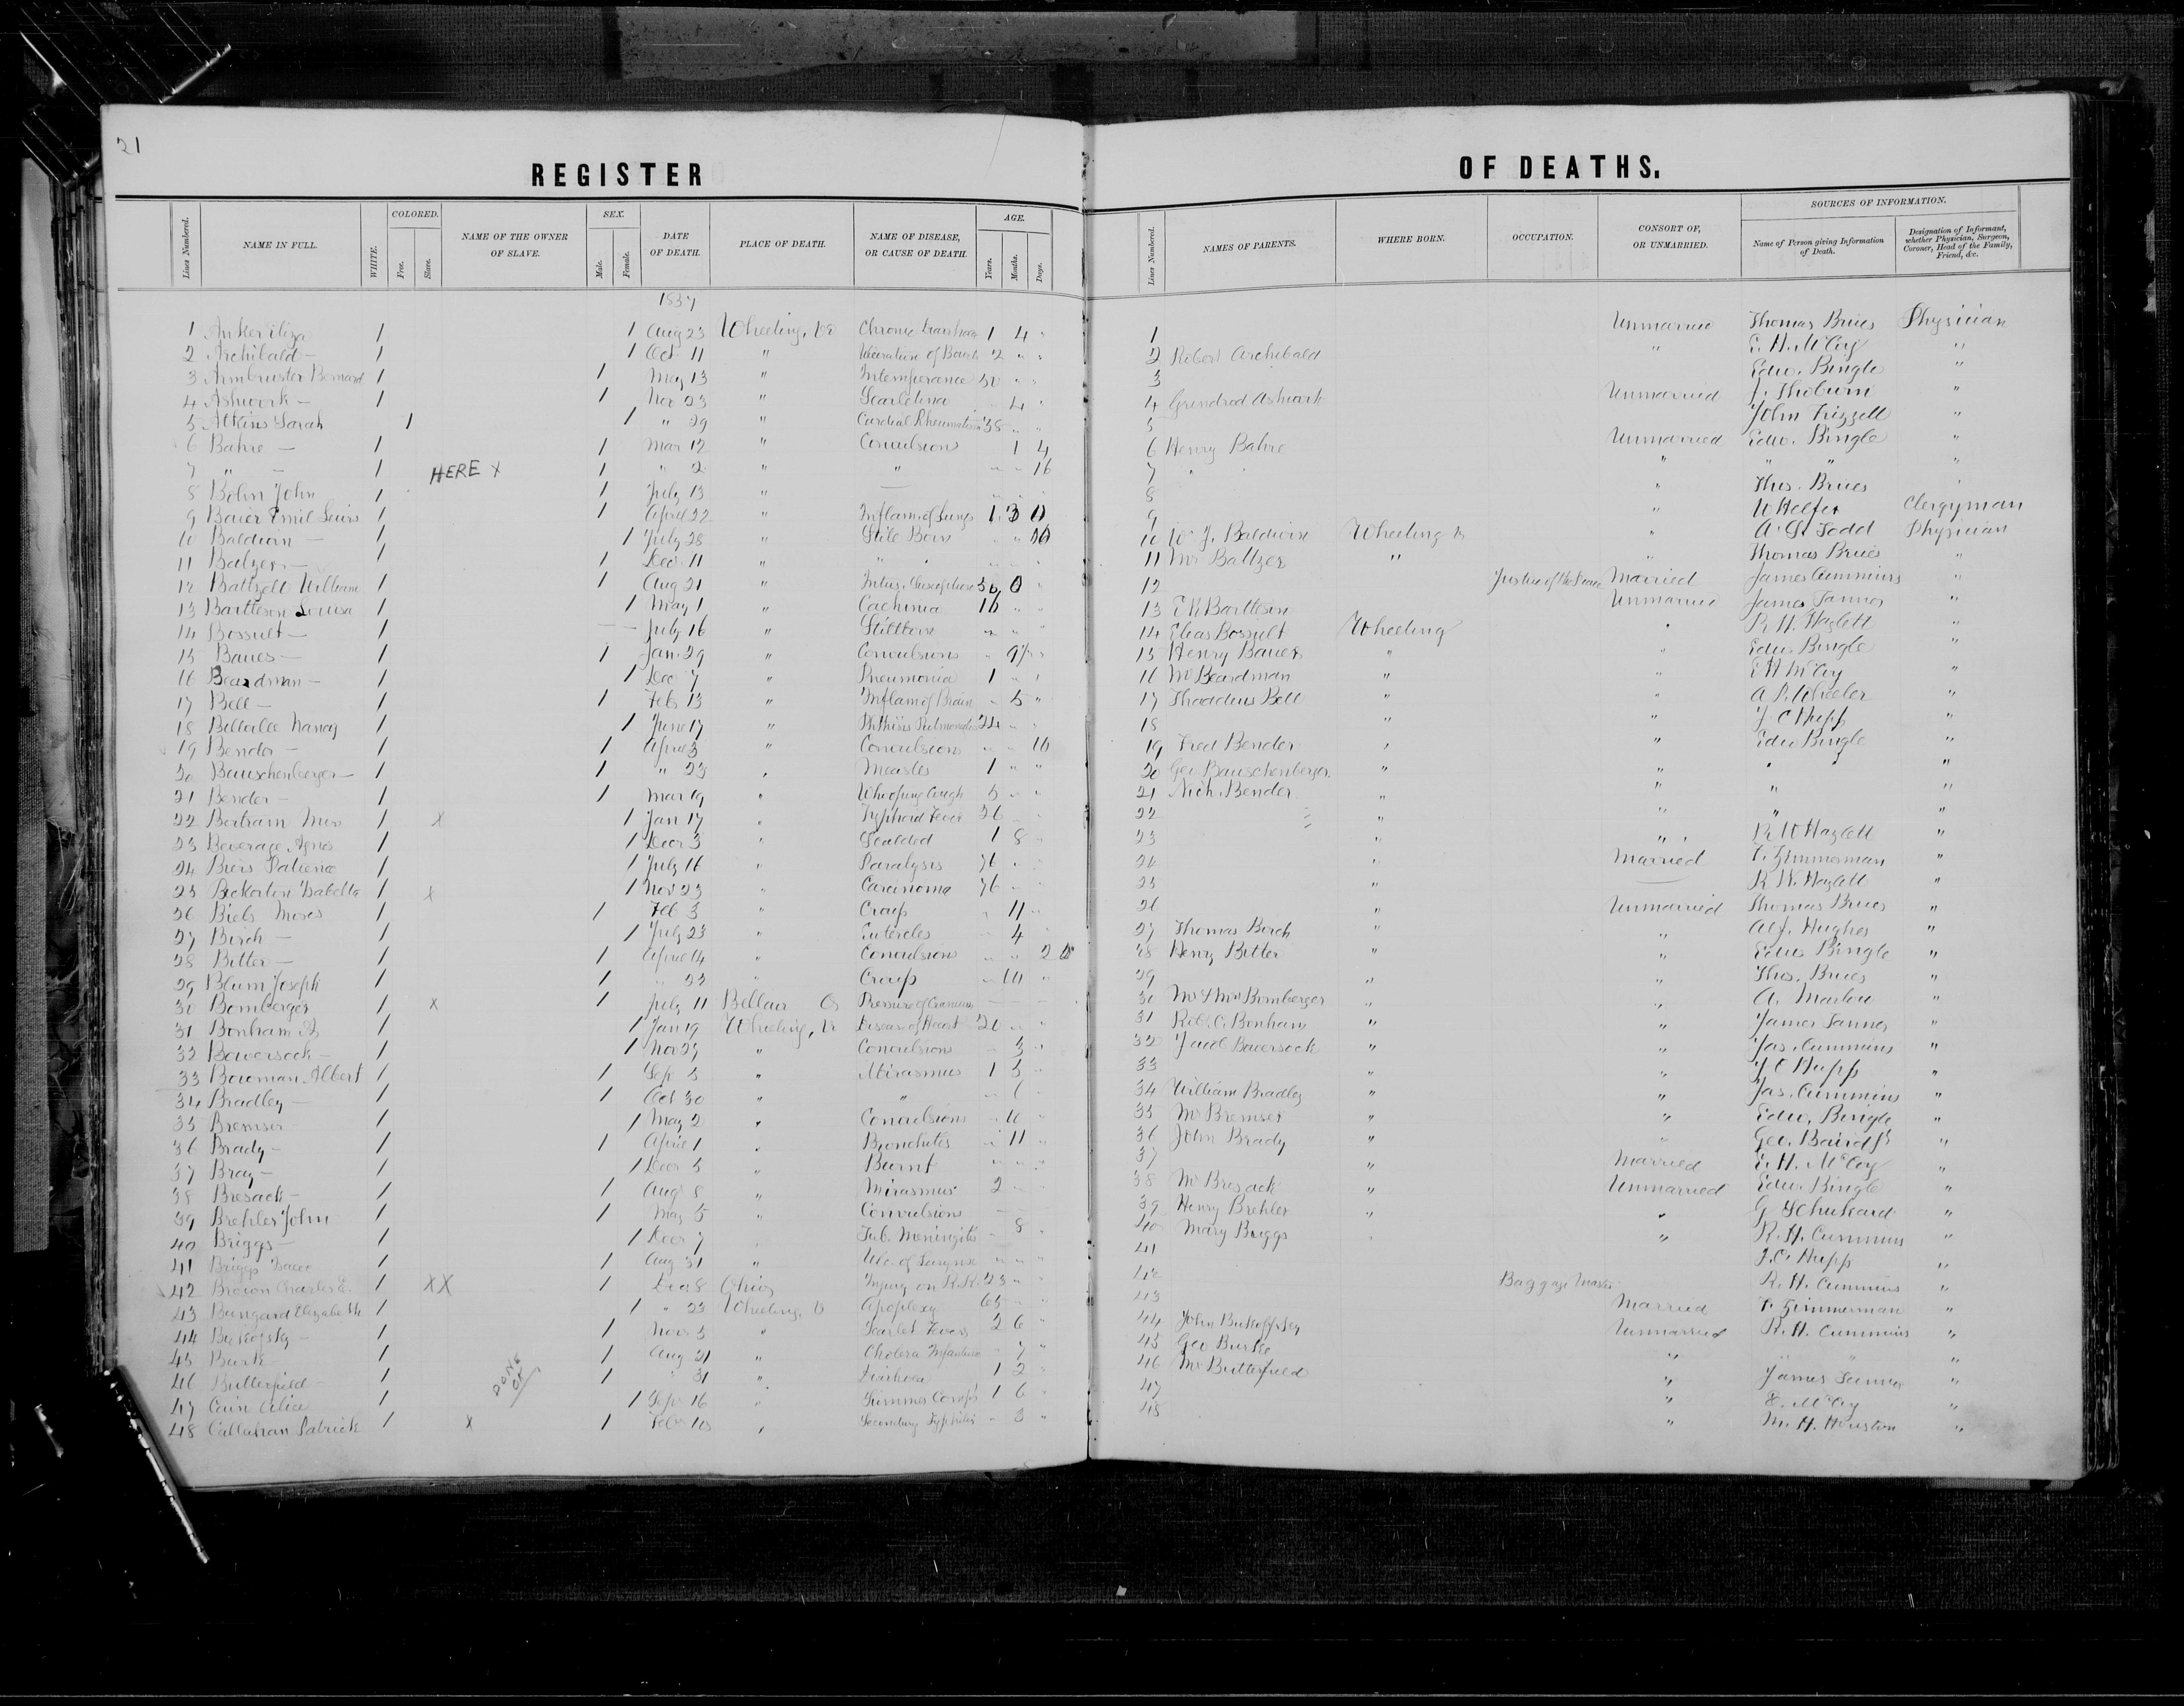 21
REGISTER OF DEATHS.
Lines Numbered. NAME IN FULL. WHITE. COLORED. Free. Slave. NAME OF THE OWNER OF SLAVE. SEX. Male. Female. DATE OF DEATH. PLACE OF DEATH. NAME OF DISEASE, OR CAUSE OF DEATH. AGE. Years. Months. Days. Lines Numbered. NAMES OF PARENTS. WHERE BORN. OCCUPATION. CONSORT OF, OR UNMARRIED. SOURCES OF INFORMATION. Name of Person giving Information of Death. Designation of Informant, whether Physician, Surgeon, Coroner, Head of the Family, Friend, &c.
1857
1 Anker Eliza 1 1 Aug 23 Wheeling, Va Chronic Diarrhoea 1 4 " 1 Unmarried Thomas Brues Physician
2 Archibald — 1 1 Oct 11 " Ulceration of 2 " " 2 Robert Archibald " E. H. McCoy "
3 Armbruster Bernard 1 1 May 13 " Intemperance 50 " " 3 Edw. Bingle "
4 Ashwork — 1 1 Nov 23 " Scarletina 4 " 4 Grindrod Ashwork Unmarried J. Thoburn "
5 Atkins Sarah 1 1 " 29 " Cardial Rheumatism 38 " " 5 John Frizzell "
6 Bahre — 1 1 Mar 12 " Convulsions 1 4 6 Henry Bahre Unmarried Edw. Bingle "
7 " — 1 HERE X 1 " 2 " " " " 16 7 " " " " " "
8 Bohn John 1 1 July 13 " — " " " 8 " Thos. Brues "
9 Baier Emil Louis 1 1 April 22 " Inflam. of Lungs 1 3 9 " W Helfer Clergyman
10 Baldwin — 1 1 July 28 " Still Born " " 10 Wm J. Baldwin Wheeling " A. S. Todd Physician
11 Balzer — 1 1 Dec 11 " " " 11 Mr Baltzer " " Thomas Brues "
12 Battzell William 1 1 Aug 21 " Intus. Susception 56 0 " 12 Justice of the Peace Married James Cummins "
13 Bartleson Louisa 1 1 May 1 " 16 " " 13 Bartleson Unmarried James Tanner "
14 Bossult — 1 — — July 16 " Stillborn " " " 14 Elias Bossult Wheeling " R. H. Hazlett "
15 Bauer — 1 1 Jan 29 " Convulsions " 9 " 15 Henry Bauer " " Edw Bingle "
16 Beardman — 1 1 Dec 7 " Pneumonia 1 " " 16 Mr Beardman " " E H McCoy "
17 Bell — 1 1 Feb 13 " Inflam of Brain " 5 " 17 Thaddeus Bell " " A S. Wheeler "
18 Nancy 1 1 June 17 " Phthisis Pulmonalis 24 " " 18 " " J C Hupp "
19 Bender — 1 1 April 3 " Convulsion " " 10 19 Fred Bender " " Edw Bingle "
20 Bauschenberger — 1 1 " 23 " Measles 1 " " 20 Geo Bauschenberger " " " "
21 Bender — 1 1 Mar 19 " Whooping Cough 5 " " 21 Nich. Bender " " " "
22 Bertram Mrs 1 X 1 Jan 17 " Typhoid Fever 26 " " 22 " " " "
23 Beverage Agnes 1 1 Decr 3 " Scalded 1 8 " 23 " " R H Hazlett "
24 Biers Patience 1 1 July 16 " Paralysis 76 " " 24 " Married F. Zimmerman "
25 Bickerton Isabella 1 X 1 Nov 23 " Carcinoma 76 " " 25 " — R H. Hazlett "
26 Moses 1 1 Feb 3 " Croup " 11 " 26 " Unmarried Thomas Brues "
27 Birch — 1 1 July 23 " " 4 " 27 Thomas Birch " " Alf. Hughes "
28 Bitter — 1 1 April 14 " Convulsions " " 2 28 Henry Bitter " " Edw Bingle "
29 Blum Joseph 1 1 " 23 " Croup " 10 " 29 " " Thos. Brues "
30 Bomberger 1 X 1 July 11 Bellair O Pressure of Cranium — — — 30 Mr & Mrs Bomberger " " A. "
31 Bonham 1 1 Jan 19 Wheeling, Va Disease of Heart 20 " " 31 Rob. C. Bonham " " James Tanner "
32 Bowersock — 1 1 Nov 27 " Convulsions " 3 " 32 Jacob Bowersock " " Jas. Cummins "
33 Bowman Albert 1 1 Sep 3 " Mirasmus 1 3 " 33 " " J C Hupp "
34 Bradley — 1 1 Oct 30 " " " " 34 William Bradley " " Jas. Cummins "
35 Bremser 1 1 May 2 " Convulsions " " 35 Mr Bremser " " Edw. Bingle "
36 Brady — 1 1 April 1 " Bronchitis " 11 " 36 John Brady " " Geo. Baird "
37 Bray — 1 1 Decr 5 " Burnt " " " 37 " Married E. H. McCoy "
38 Bresack — 1 1 Aug 8 " Mirasmus 2 " " 38 Mr Bresack " Unmarried Edw. Bingle "
39 Brehler John 1 1 May 5 " Convulsions — — 39 Henry Brehler " " G Schukard "
40 Briggs — 1 1 Decr 7 " Tub. Meningitis " 8 " 40 Mary Briggs " " R. H. Cummins "
41 Briggs Isaac 1 1 Aug 31 " Ulc. of Larynx " " " 41 J. C. Hupp "
42 Brown Charles E. 1 XX 1 Dec 8 Ohio Injury on R.R. 23 " " 42 Baggage Master R. H. Cummins "
43 Bungard Elizabeth 1 1 " 23 Wheeling, V Apoplexy 65 " " 43 Married F. Zimmerman "
44 1 1 Nov 3 " Scarlet Fever 2 6 " 44 John Unmarried R. H. Cummins "
45 Burk — 1 1 Aug 21 " Cholera Infantum " 7 " 45 Geo Burke " " "
46 Butterfield — 1 DONE 1 " 31 " Diarhoea 1 2 " 46 Mr Butterfield " James Tanner "
47 Cain Celia 1 1 Sept 16 " Summer Comp 1 6 " 47 " E. McCoy "
48 Callahan Patrick 1 X 1 " Secondary Syphilis " 3 " 48 " M. H. Houston "